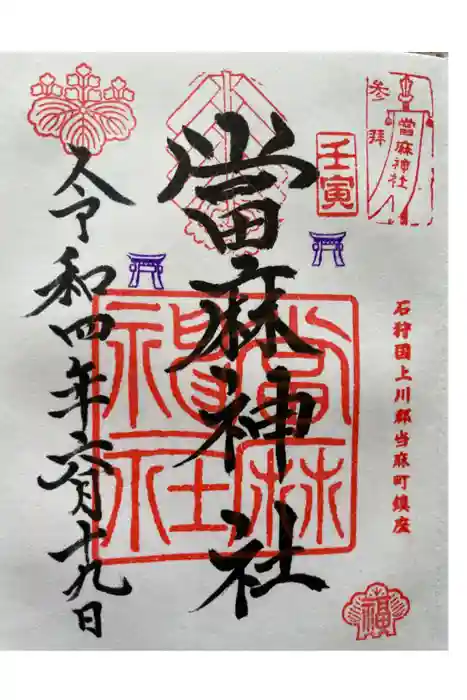 參拝
當麻神社
壬寅
石狩国上川郡当麻町鎮座
當麻神社
當麻神社
令和四年六月十九日
福